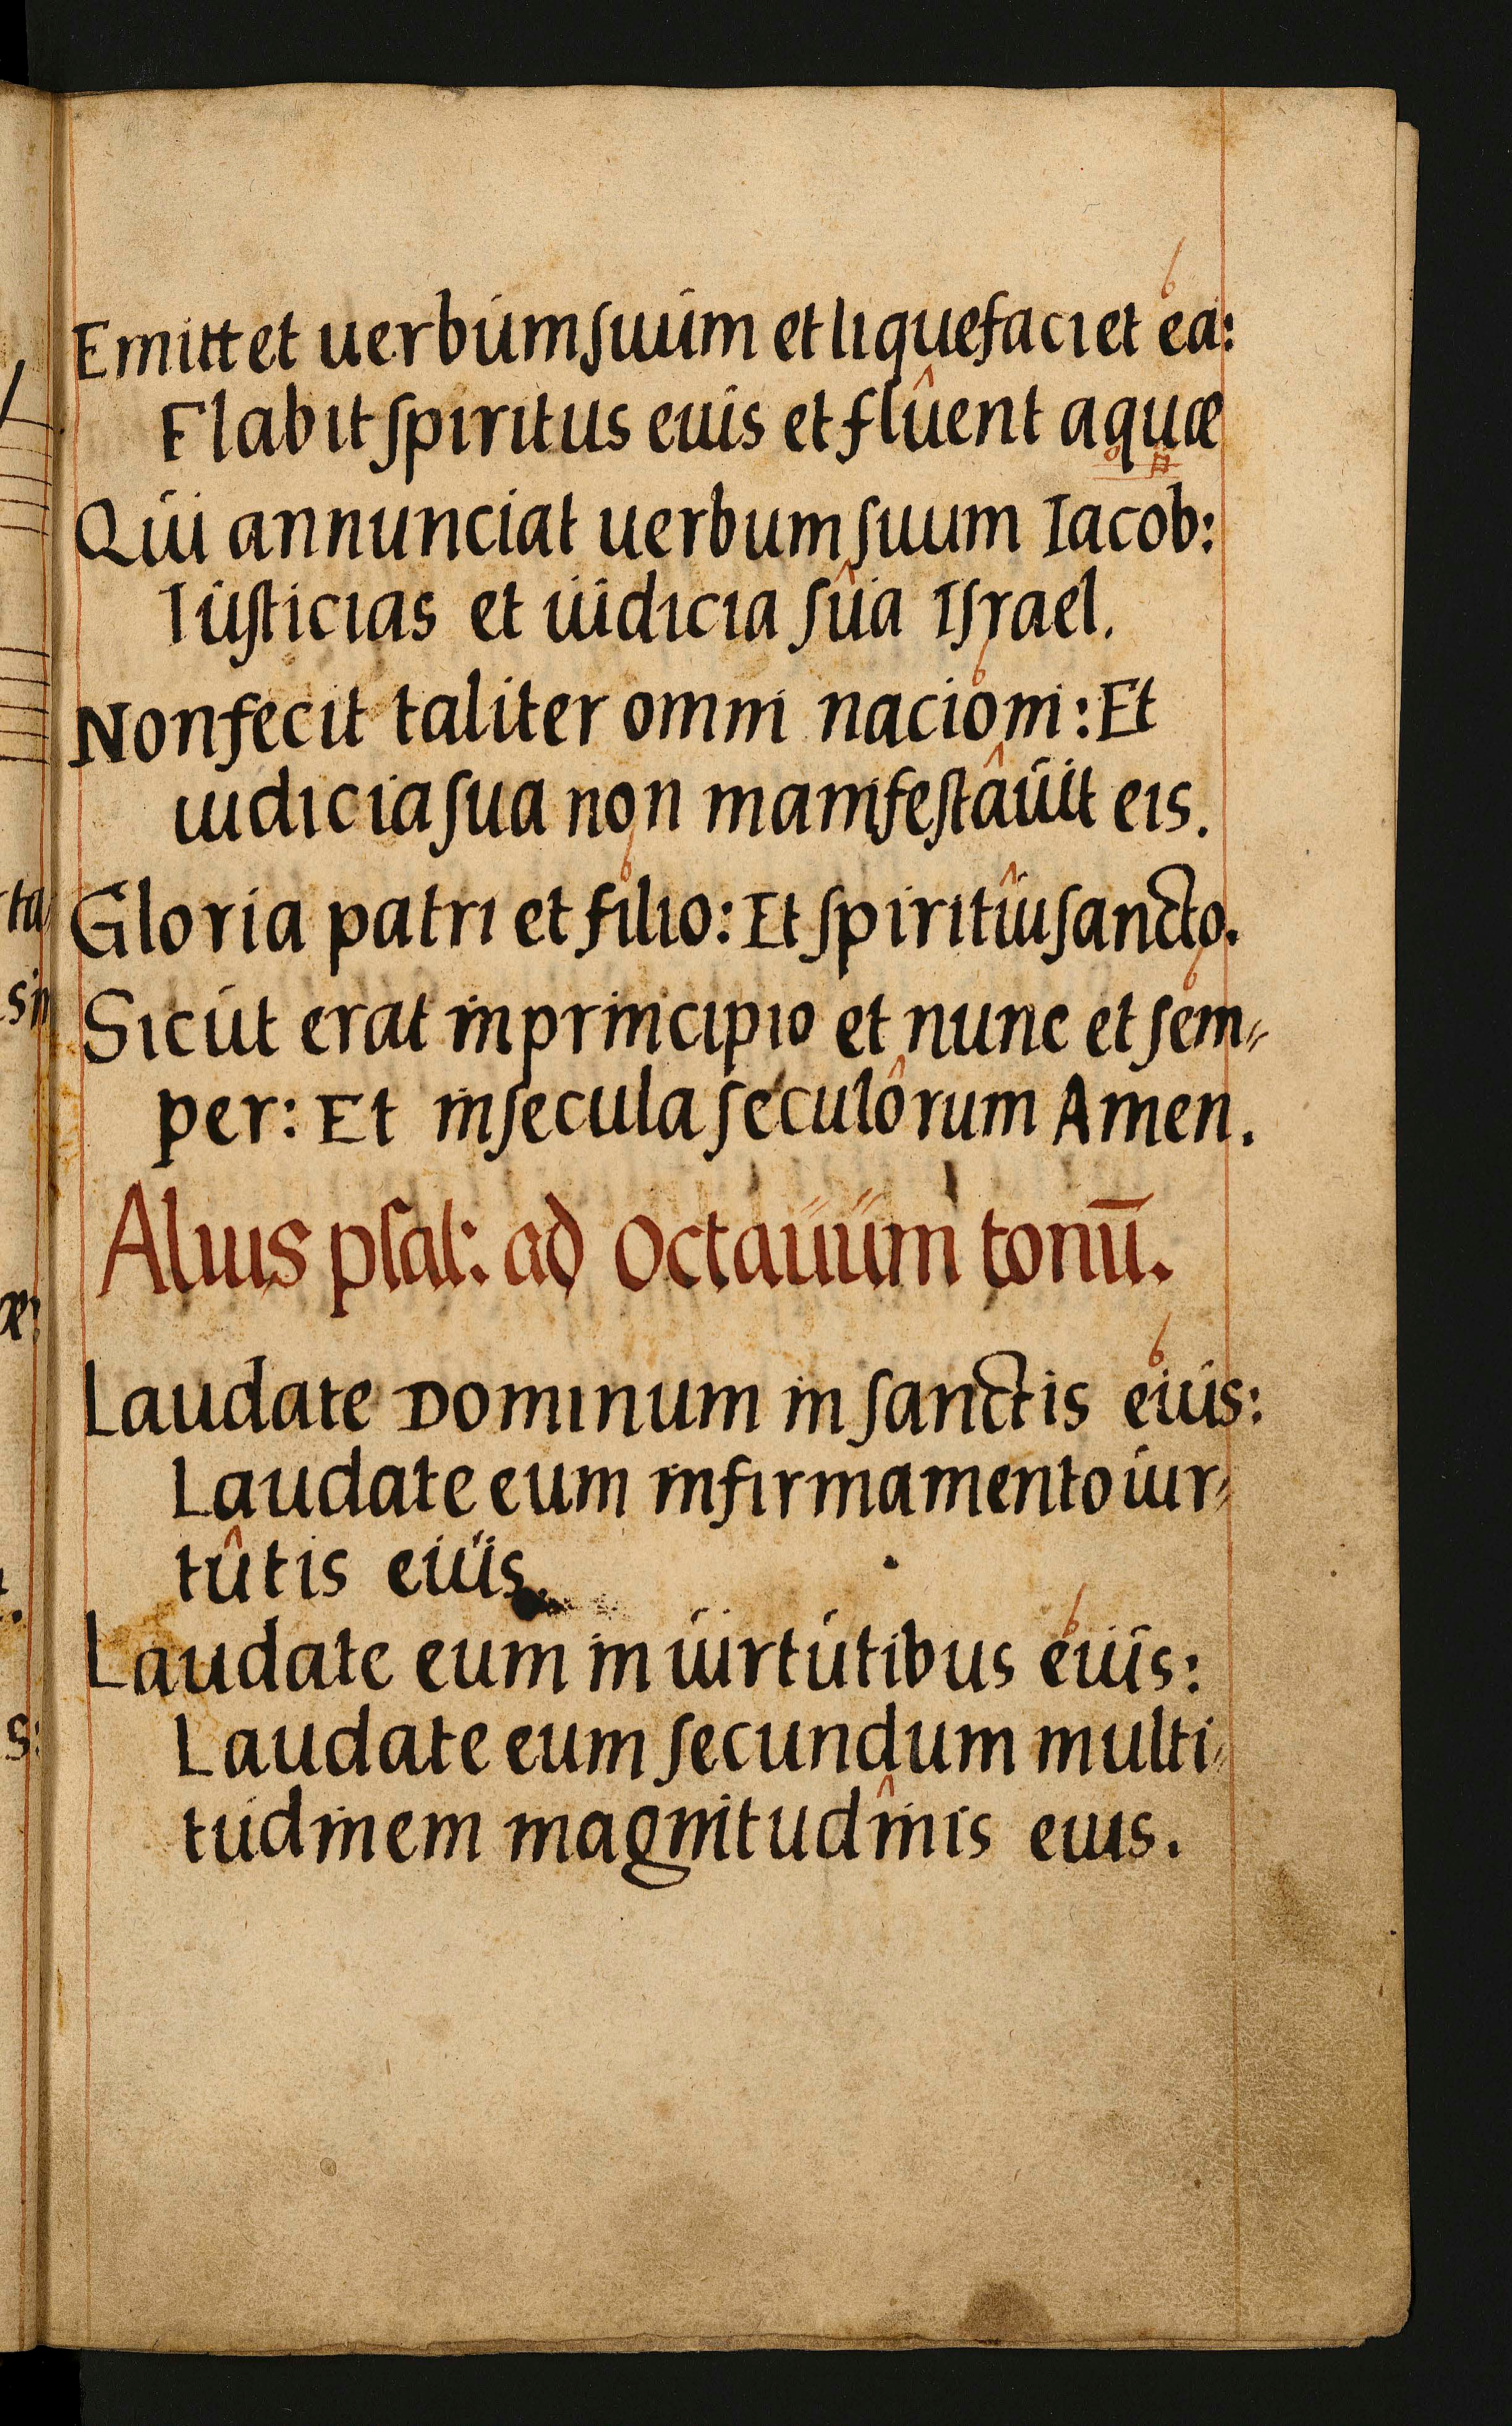 Emittet uerbum ſuum et liquefaciet ea:
Flabit ſpiritus euis et fluent aquæ
Qui annunciat uerbum ſuum Iacob:
Iuſticias et iudicia ſua Iſrael.
Non fecit taliter omni nacioni: Et
iudicia ſua non manifeſtauit eis.
Gloria patri et filio: Et ſpiritui ſancto.
Sicut erat in principio et nunc et ſem⸗
per: Et in ſecula ſeculorum Amen.
Alius pſal: ad octauum tonū.
Laudate Dominum in ſanctis eius:
Laudate eum in firmamento uir⸗
tutis eius.
Laudate eum in uirtutibus eius:
Laudate eum ſecundum multi⸗
tudinem magnitudinis eius.